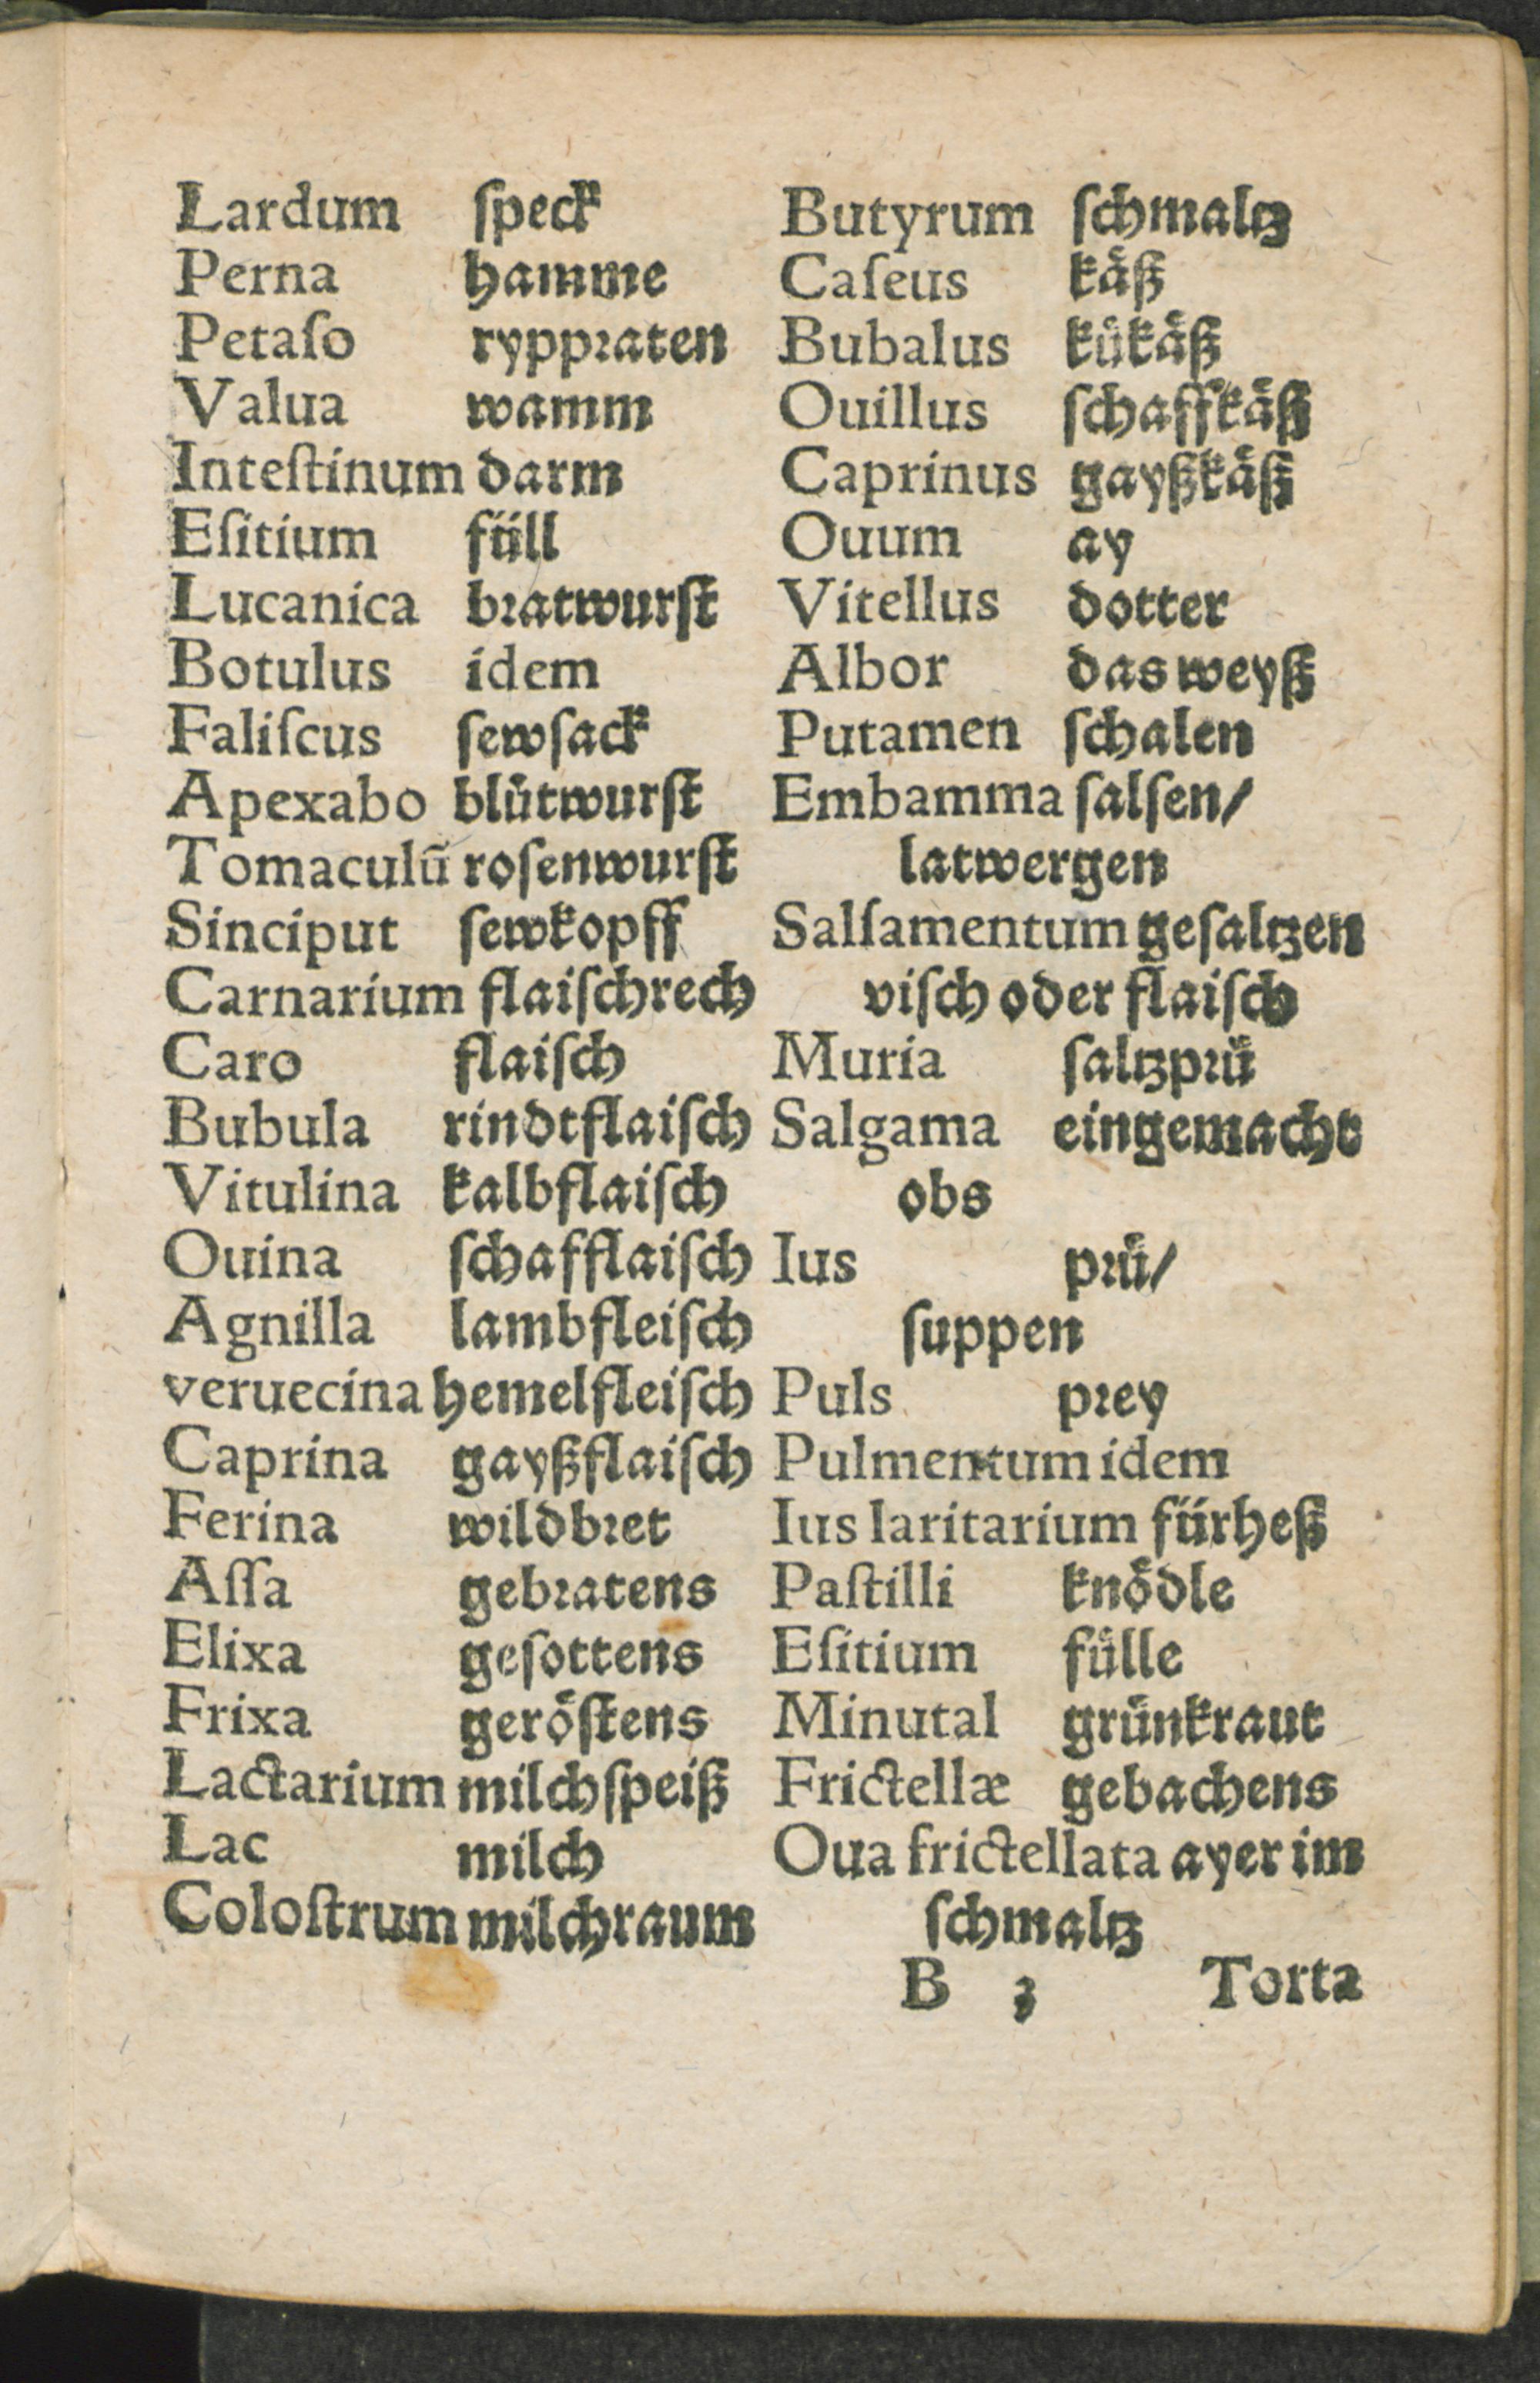 Lardum ſpeck
Perna hamme
Petaſo ryppꝛaten
Valua wamm
Inteſtinum darm
Eſitium füll
Lucanica bꝛatwurſt
Botulus idem
Faliſcus ſewſack
Apexabo blůtwurſt
Tomaculū roſenwurſt
Sinciput ſewkopff
Carnarium flaiſchrech
Caro flaiſch
Bubula rindtflaiſch
Vitulina kalbflaiſch
Ouina ſchafflaiſch
Agnilla lambfleiſch
veruecina hemelfleiſch
Caprina gayßflaiſch
Ferina wildbꝛet
Aſſa gebꝛatens
Elixa geſottens
Frixa geröſtens
Lactarium milchſpeiß
Lac milch
Coloſtrum milchraum
Butyrum ſchmaltz
Caſeus käß
Bubalus kůkäß
Ouillus ſchaffkäß
Caprinus gayßkäß
Ouum ay
Vitellus dotter
Albor das weyß
Putamen ſchalen
Embamma ſalſen/
latwergen
Salſamentum geſaltzen
viſch oder flaiſch
Muria ſaltzpꝛü
Salgama eingemacht
obs
Ius pꝛü/
ſuppen
Puls pꝛey
Pulmentum idem
Ius laritarium fürheß
Paſtilli knödle
Eſitium fülle
Minutal grünkraut
Frictellæ gebachens
Oua frictellata ayer im
ſchmaltz
B 3 Torta